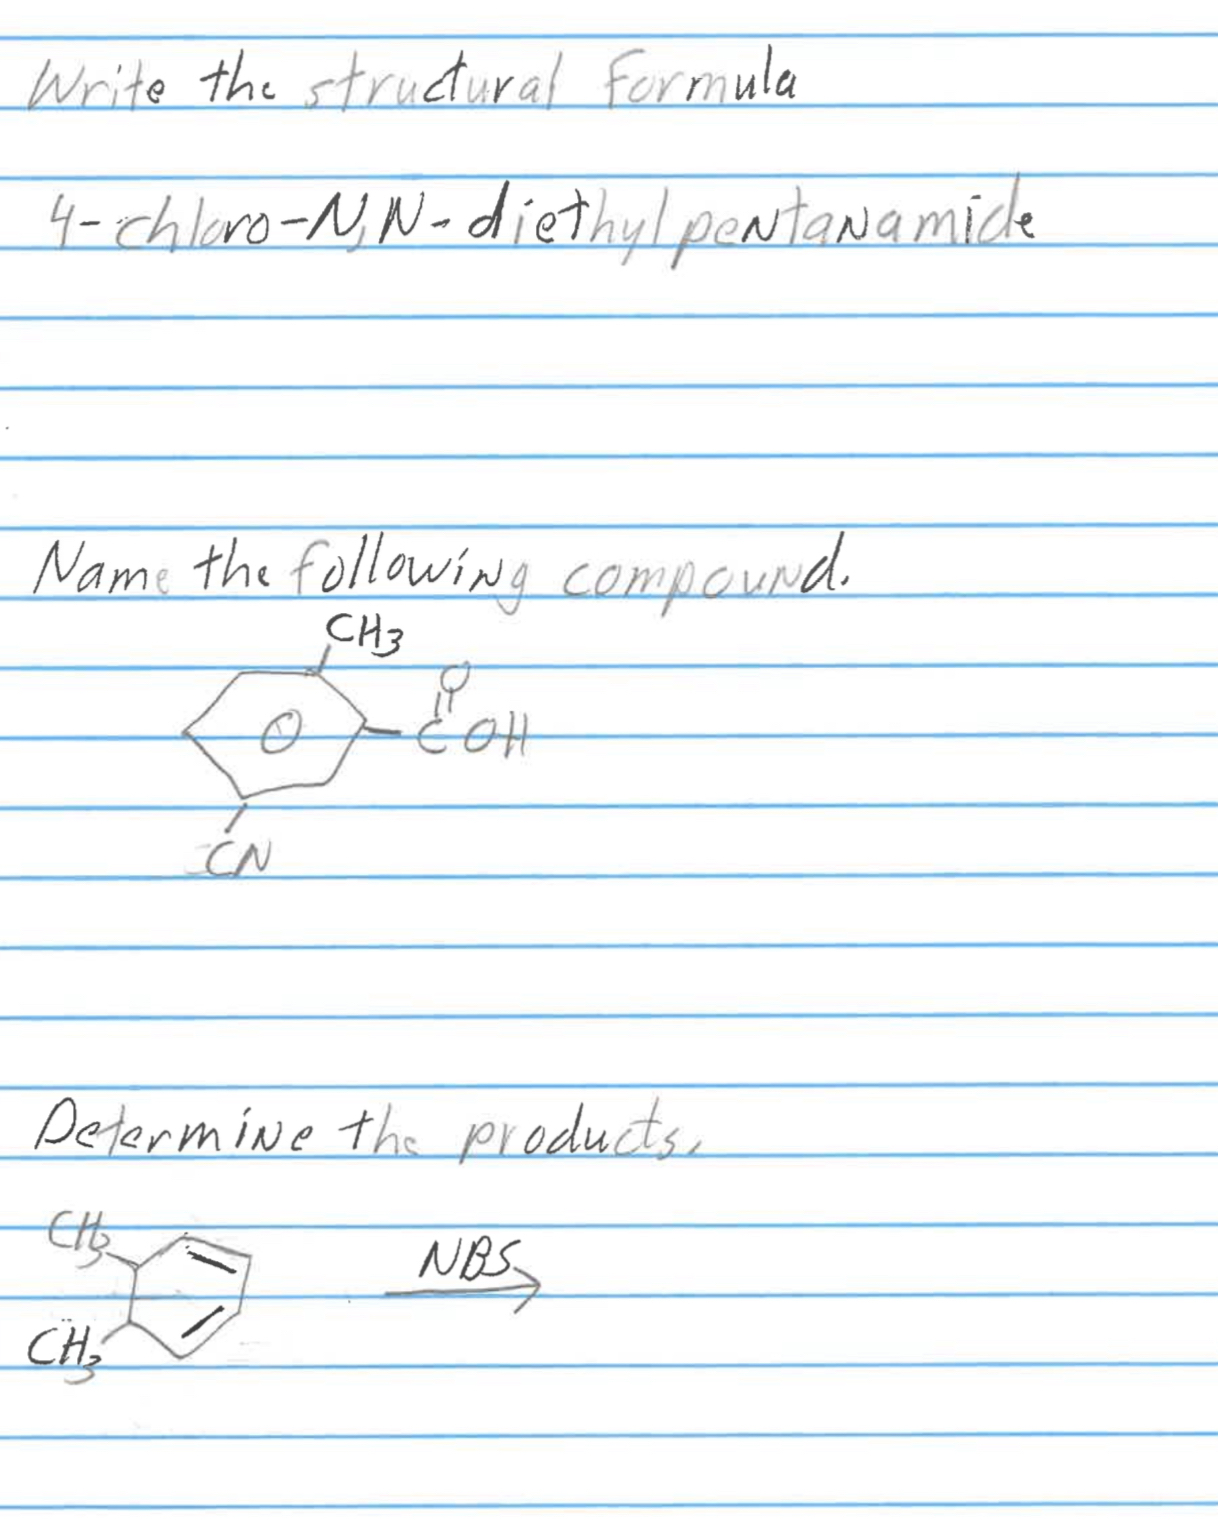 Write the structural formula
4-chloro-N,N-diethylpentanamide
Name the following compound.
CH3
O
C OH
CN
Determine the products.
CH3
NBS
CH3